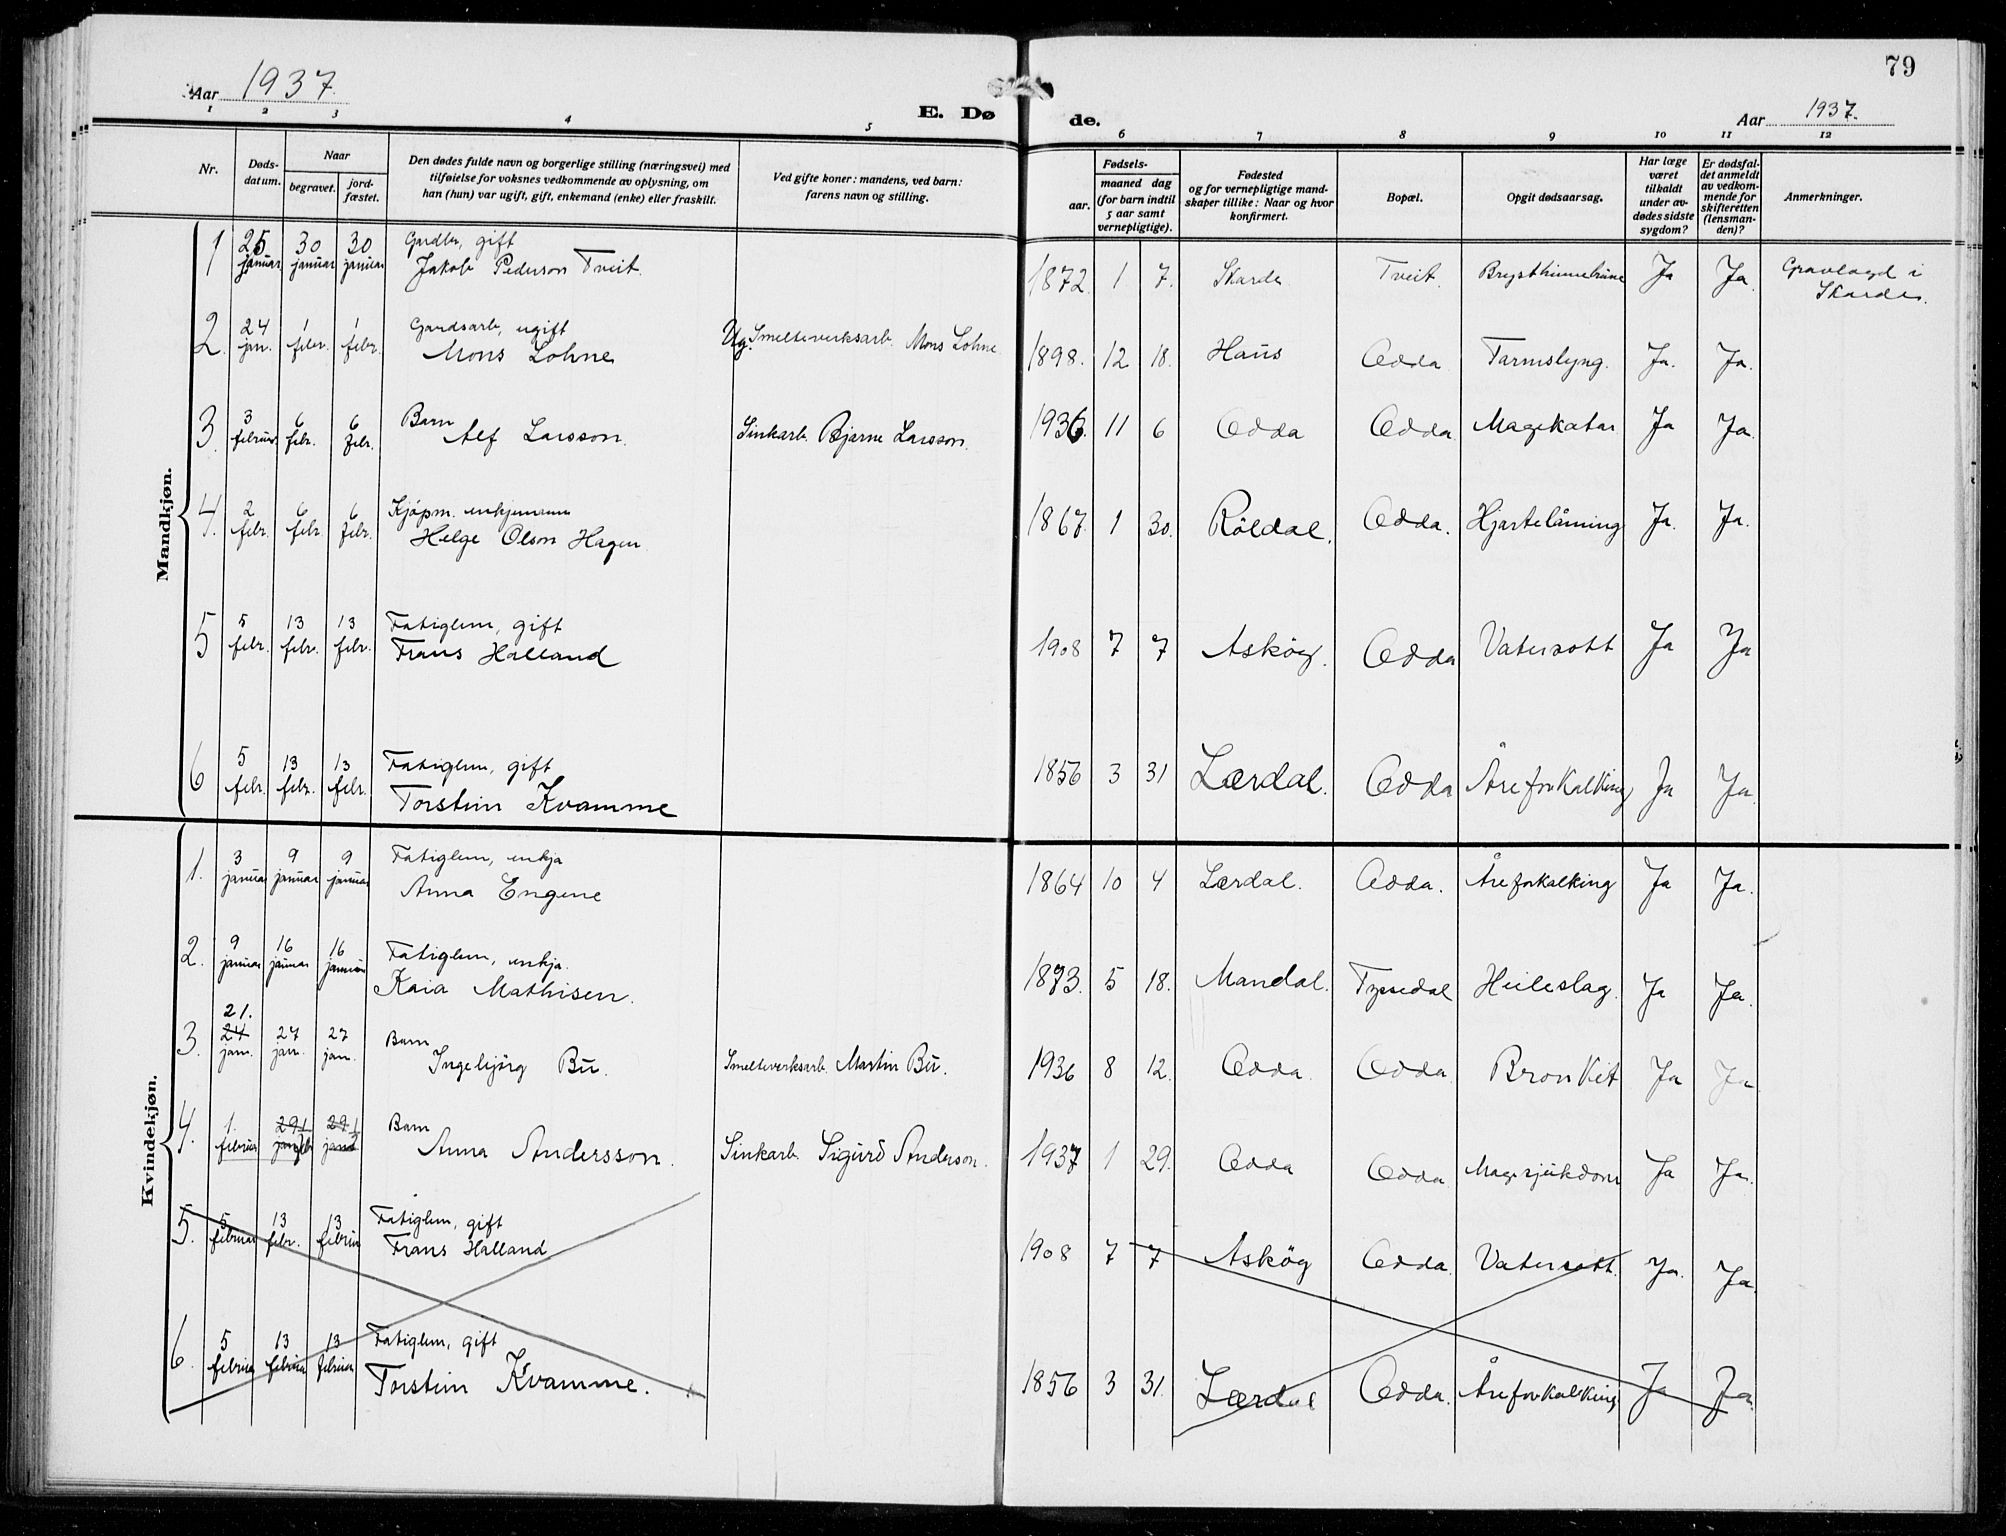 Aar 1937.
E. Dø
de.
Aar 1937.
79
1 2 3 4 5 6 7 8 9 10 11 12
Nr.
Døds-
datum.
Naar
begravet.
jord-
fæstet.
Den dødes fulde navn og borgerlige stilling (næringsvei) med
tilføielse for voksnes vedkommende av oplysning, om
han (hun) var ugift, gift, enkemand (enke) eller fraskilt.
Ved gifte koner: mandens, ved barn:
farens navn og stilling.
Fødsels-
aar.
maaned dag
(for barn indtil
5 aar samt
vernepligtige).
Fødested
og for vernepligtige mand-
skaper tillike: Naar og hvor
konfirmert.
Bopæl.
Opgit dødsaarsag.
Har læge
været
tilkaldt
under av-
dødes sidste
sygdom?
Er dødsfal-
det anmeldt
av vedkom-
mende for
skifteretten
(lensman-
den)?
Anmerkninger.
Mandkjøn.
1 25 januar 30 januar 30 januar Gardbr, gift
Jakob Pederson Tveit. 1872. 1 7. Skarde Tveit. Brysthinnebrune Ja Ja. Gravlagd i
Skarde.
2. 24 jan. 1 febr. 1 febr. Gardsarb, ugift
Mons Lohne Ug. Smelteverksarb. Mons Lohne 1898. 12 18. Haus Odda Tarmslyng. Ja. Ja.
3. 3 februar 6 febr. 6 febr. Barn
Alf Larsson. Sinkarb. Bjarne Larsson. 1936. 11 6 Odda Odda Magekatar Ja Ja.
4. 2 febr. 6 febr. 6 febr. Kjøpm. enkjemann
Helge Olson Hagen 1867. 1 30. Røldal. Odda. Hjartelåming Ja. Ja.
5 5 febr. 13 febr. 13 febr. Fatiglem, gift
Frans Halland 1908 7 7 Askøy. Odda Vatersott Ja Ja
6 5 febr. 13 febr. 13 febr. Fatiglem, gift
Torstein Kvamme 1856 3 31 Lærdal. Odda Åreforkalking Ja Ja.
Kvindekjøn.
1. 3 januar 9 januar 9 januar Fatiglem, enkja
Anna Engene 1864 10 4 Lærdal. Odda. Åreforkalking Ja Ja.
2. 9 januar 16 januar 16 januar Fatiglem, enkja.
Kaia Mathisen. 1873. 5 18. Mandal. Tyssedal Heileslag. Ja Ja.
3. 21. 24 jan. 27 jan. 27 jan. Barn
Ingebjørg Bu. Smelteverksarb. Martin Bu. 1936 8 12. Odda Odda Bronkit Ja Ja
4. 1. februar 29 jan 29 jan Barn
Anna Andersson. Sinkarb. Sigurd Anderson. 1937 1 29. Odda Odda Magesjukdom Ja Ja.
5. 5 februar 13 febr. 13 februar Fatiglem, gift
Frans Halland 1908 7 7 Askøy Odda. Vatersott. Ja. Ja.
6. 5 februar 13 februar 13 februar Fatiglem, gift
Torstein Kvamme. 1856 3 31. Lærdal Odda. Åreforkalking Ja Ja.